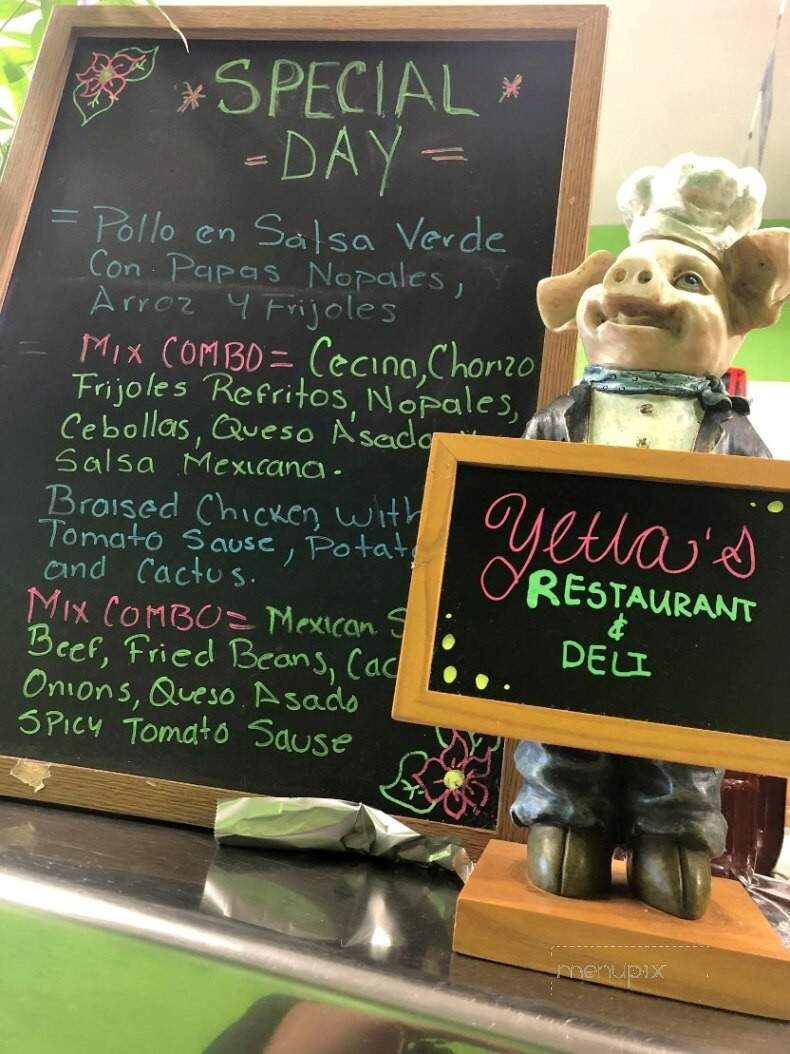 * SPECIAL *
= DAY =
= Pollo en Salsa Verde
Con Papas Nopales,
Arroz y Frijoles
= MIX COMBO = Cecina, Chorizo
Frijoles Refritos, Nopales,
Cebollas, Queso Asado
Salsa Mexicana.
Braised Chicken, with
Tomato Sause, Potat
and Cactus.
MIX COMBO = Mexican S
Beef, Fried Beans, Cac
Onions, Queso Asado
SPICY Tomato Sause
Yetta's
RESTAURANT
&
DELI
menupix